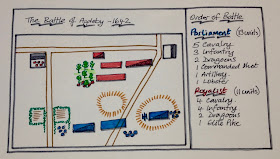 The Battle of Appleby - 1642
Order of Battle
Parliament (13 units)
5 Cavalry
3 Infantry
2 Dragoons
1 Commanded Shot
1 Artillery
1 Leader
Royalist (11 units)
4 Cavalry
4 Infantry
2 Dragoons
1 Elite Pike